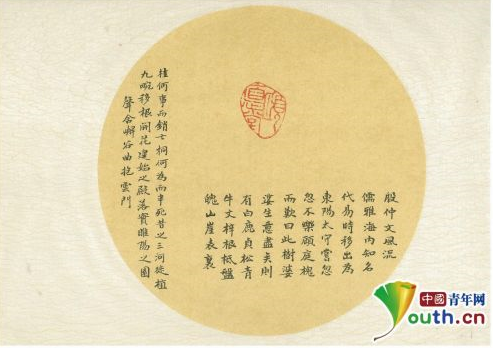 殷仲文風流
儒雅海内知名
代易時移出為
東陽太守嘗忽
忽不樂顧庭槐
而歎曰此樹婆
娑生意盡矣則
有白鹿貞松青
牛文梓根柢盤
魄山崖表裏
桂何事而銷亡桐何為而半死昔之三河徙植
九畹移根開花建始之殿落實睢陽之園
聲含嶰谷曲抱雲門
中國青年网
Youth.cn